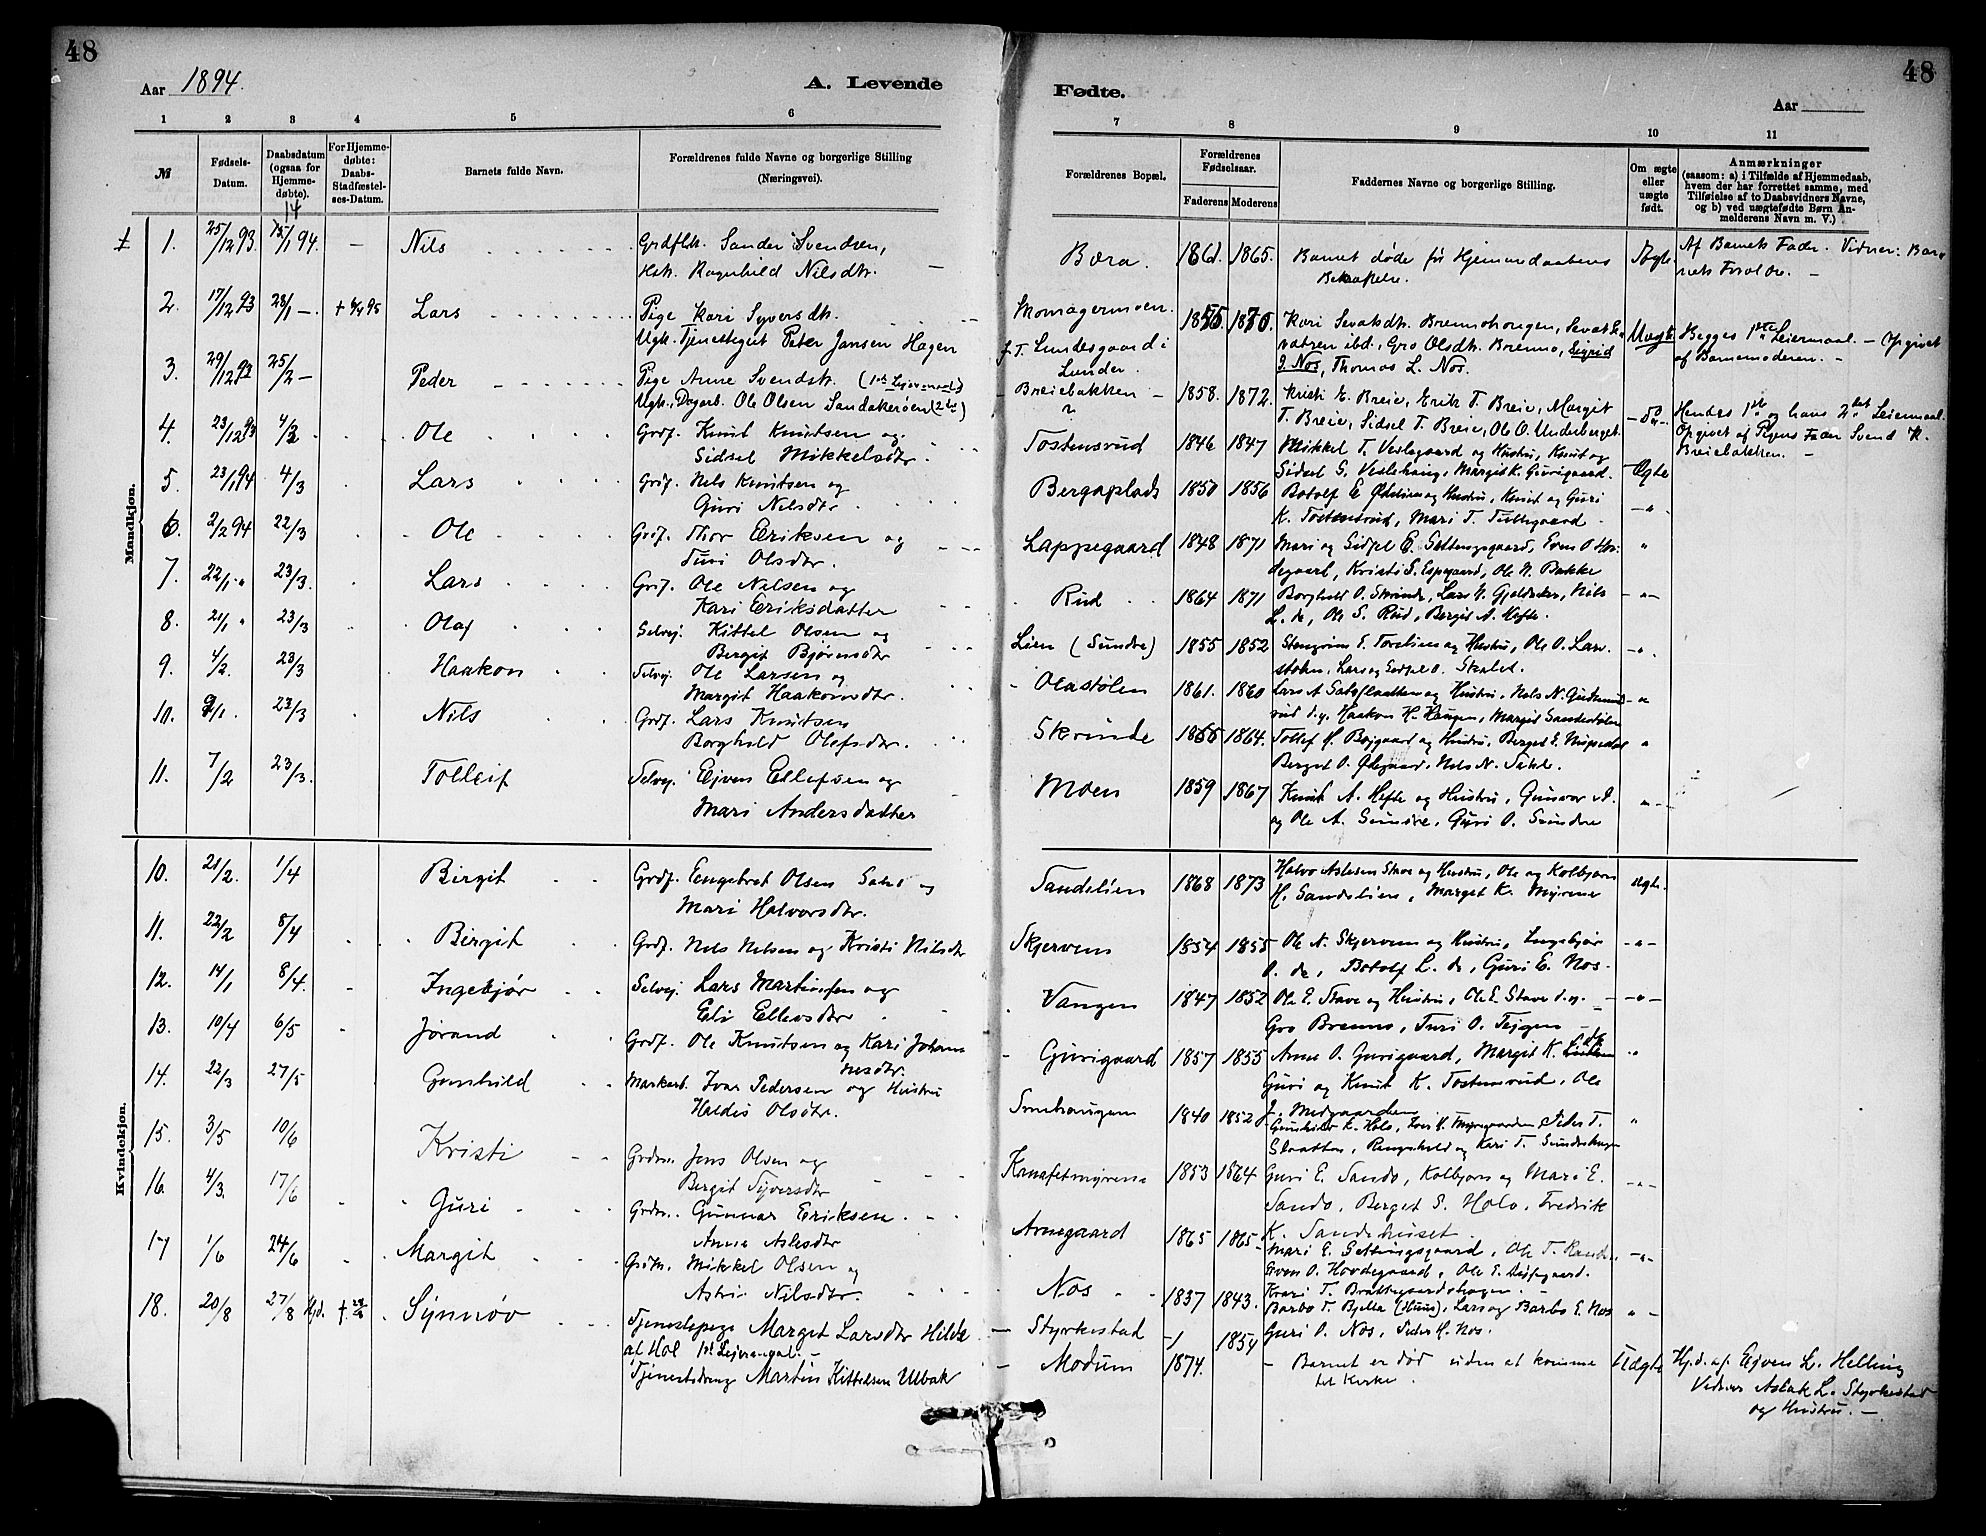 48
48
Aar 1894.
A. Levende
Fødte.
Aar
1 2 3 4 5 6
7 8 9 10 11
№
Fødsels-
Datum.
Daabsdatum
(ogsaa for
Hjemme-
døbte).
For Hjemme-
døbte:
Daabs-
Stadfæstel-
ses-Datum.
Barnets fulde Navn.
Forældrenes fulde Navne og borgerlige Stilling
(Næringsvei).
Forældrenes Bopæl.
Forældrenes
Fødselsaar.
Faderens Moderens
Faddernes Navne og borgerlige Stilling.
Om ægte
eller
uægte
født.
Anmærkninger
(saasom: a) i Tilfælde af Hjemmedaab,
hvem der har forrettet samme, med
Tilføielse af to Daabsvidners Navne,
og b) ved uægtefødte Børn An-
melderens Navn m. V.)
Mandkjøn.
1. 25/12 93. 14/1 94. — Nils Grdflk. Sander Svendsen,
Hstr. Ragnhild Nilsdtr. —
Bæra. 1861. 1865. Barnet døde før Hjemmedaabens
Bekræftelse.
Ægte. Af Barnets Fader. Vidner: Bar-
nets Forældre. —
2. 17/12 93 28/1 — Lars Pige Kari Syversdtr.
Ugk. Tjenestegut Peter Jansen Hagen
Momagermoen
J. T. Lundesgaard i
Lunder.
1870. Kari Sevatsdtr. Brennohougen, Sevat Se-
vatsen ibd., Gro Olsdtr. Brenno, Sigrid
J. Nos, Thomas L. Nos.
Uægte Begges 1ste Leiermaal. — Opgivet
af Barnemoderen. —
3. 29/12 93 25/2 — Peder Pige Anne Svendsdtr. (1ste Lejermaal)
Ugk., Dagarb. Ole Olsen Sandakerøen (2det)
Breiebakken — 1858. 1872. Kristi E. Breie, Erik T. Breie, Margit
T. Breie, Sidsel T. Breie, Ole O. Underberget.
—do— Hendes 1ste og hans 2det Leiermaal.
Opgivet af Pigens Fader Svend K.
Breiebakken. —
4. 23/12 93 4/3 Ole Grdf. Knut Knutsen og
Sidsel Mikkelsdtr
Tostensrud 1846 1847 Mikkel T. Veslegaard og Hustru, Knut og
Sidsel S. Veslehaug, Margit K. Gurigaard.
Ægte
5. 23/1 94 4/3 Lars Grdf. Nels Knutsen og
Guri Nilsdtr
Bergaplads 1850 1856 Botolf E. Ødelien og Hustru, Knut og Guri
K. Tostensrud, Mari T. Tuftegaard
—"—
6. 2/2 94 22/3 Ole Grdf. Thor Eriksen og
Turi Olsdtr.
Lappegaard 1848 1871 Mari og Sidsel E. Settungsgaard, Even O. Ho-
degaard, Kristi S. Espegaard, Ole N. Bakke
"
7. 22/1 " 23/3. Lars Grdf. Ole Nilsen og
Kari Eriksdatter
Rud 1864 1871 Borghild O. Skrinde, Lars N. Gjeldokk, Nils
L. do, Ole S. Rud, Bergit A. Hefte.
—"—
8. 21/1 " 23/3 Olaf Selvej. Kittel Olsen og
Bergit Bjørnsdtr
Lien (Sundre) 1855 1852 Stengrim E. Torelien og Hustru, Ole O. Lar-
stølen, Lars og Sidsel O. Skaled.
—"—
9. 4/2. 23/3 Haakon Selvej. Ole Larsen og
Margit Haakonsdtr.
Olastølen 1861. 1860 Lars A. Sataslaatten og Hustru, Nels N. Gudmund-
srud d.y. Haakon H. Haugen, Margit Sanderstølen
—"
10. 9/1. 23/3 Nils Grdf. Lars Knutsen
Borghild Olefsdtr.
Skrinde 1866 1864. Tollef H. Bøygaard og Hustru, Berget E. Nispedal
Berget O. Ødegaard, Nels N. Sekle.
"
11. 7/2 23/3. Tolleif Selvej. Ejven Ellefsen og
Mari Andersdatter
Moen 1859 1867 Knut A. Hefte og Hustru, Gunvor A.
og Ole A. Sundre, Guri O. Sundre
"—
Kvindekjøn.
10. 21/2. 1/4 Birgit Grdf. Engebret Olsen Sand og
Mari Halvorsdtr.
Sandelien 1868 1873 Halvo Aslesen Stave og Hustru, Ole og Kolbjørn
H. Sandelien, Marget K. Myrene
Ægte.
11. 22/2 8/4 Birgit Grdf. Nels Nelsen og Kristi Nilsdtr
Skjerven 1854 1855 Ole N. Skjerven og Hustru, Ingebjør
O. do, Botolf L. do, Guri E. Nos.
—"—
12. 14/1 8/4. Ingebjør Selvej. Lars Martinsen og
Eli Ellevsdtr
Vangen 1847 1852 Ole E. Stave og Hustru, Ole E. Stave d.y.
Gro Brenno, Turi O. Tejgen
—"—
13. 10/4 6/5 Jørand Grdf. Ole Knutsen og Kari Johan-
nesdtr.
Gurigaard 1857 1855 Anne O. Gurigaard, Margit K. do
Guri og Knut K. Tostensrud, Ole
J. Medgaarden
"
14. 22/3 27/5 Gunhild Markarb. Ivar Pedersen og Hustru
Haldis Olsdtr.
Smehaugen 1840 1852 Gunhild K. Holo, Iver H. Myregaarden, Peder T.
Slaatten, Ragnhild og Kari T. Sundrehagen
"
15. 3/5 10/6 Kristi Grdm. Jens Olsen og
Bergit Syversdtr
Kanafetmyrene 1853 1864 Guri E. Sando, Kolbjørn og Mari E.
Sando, Berget S. Holo, Fredrik
K. Sandehuset
—"—
16. 4/3. 17/6 Guri Grdm. Gunnar Eriksen
Anne Aslesdtr
Arnegaard 1865 1865 Mari E. Settungsgaard, Ole T. Rand
Even O. Hovdegaard, Ole E. Espegaard.
—"—
17 1/6 24/6 Margit Grdm. Mikkel Olsen og
Astri Nilsdtr.
Nos 1837 1843. Kari T. Brattegaardshagen.
Barbo T. Bjella (Huus), Lars og Barbo E. Nos
Guri O. Nos, Peder H. Nos.
"—
18. 20/8 27/8 Hjd. Synnøv Tjenestepige Marget Larsdtr Hilde
at Hol 1ste Lejermaal. —
Tjenestedreng Martin Kittelsen Ulbak
— Styrkestad 1854
— Modum 1874. — Barnet er død uden at komme
til Kirke.
Uægte Hj.d. af Ejven L. Helling
Vidner Aslak L. Styrkestad
og Hustru. —